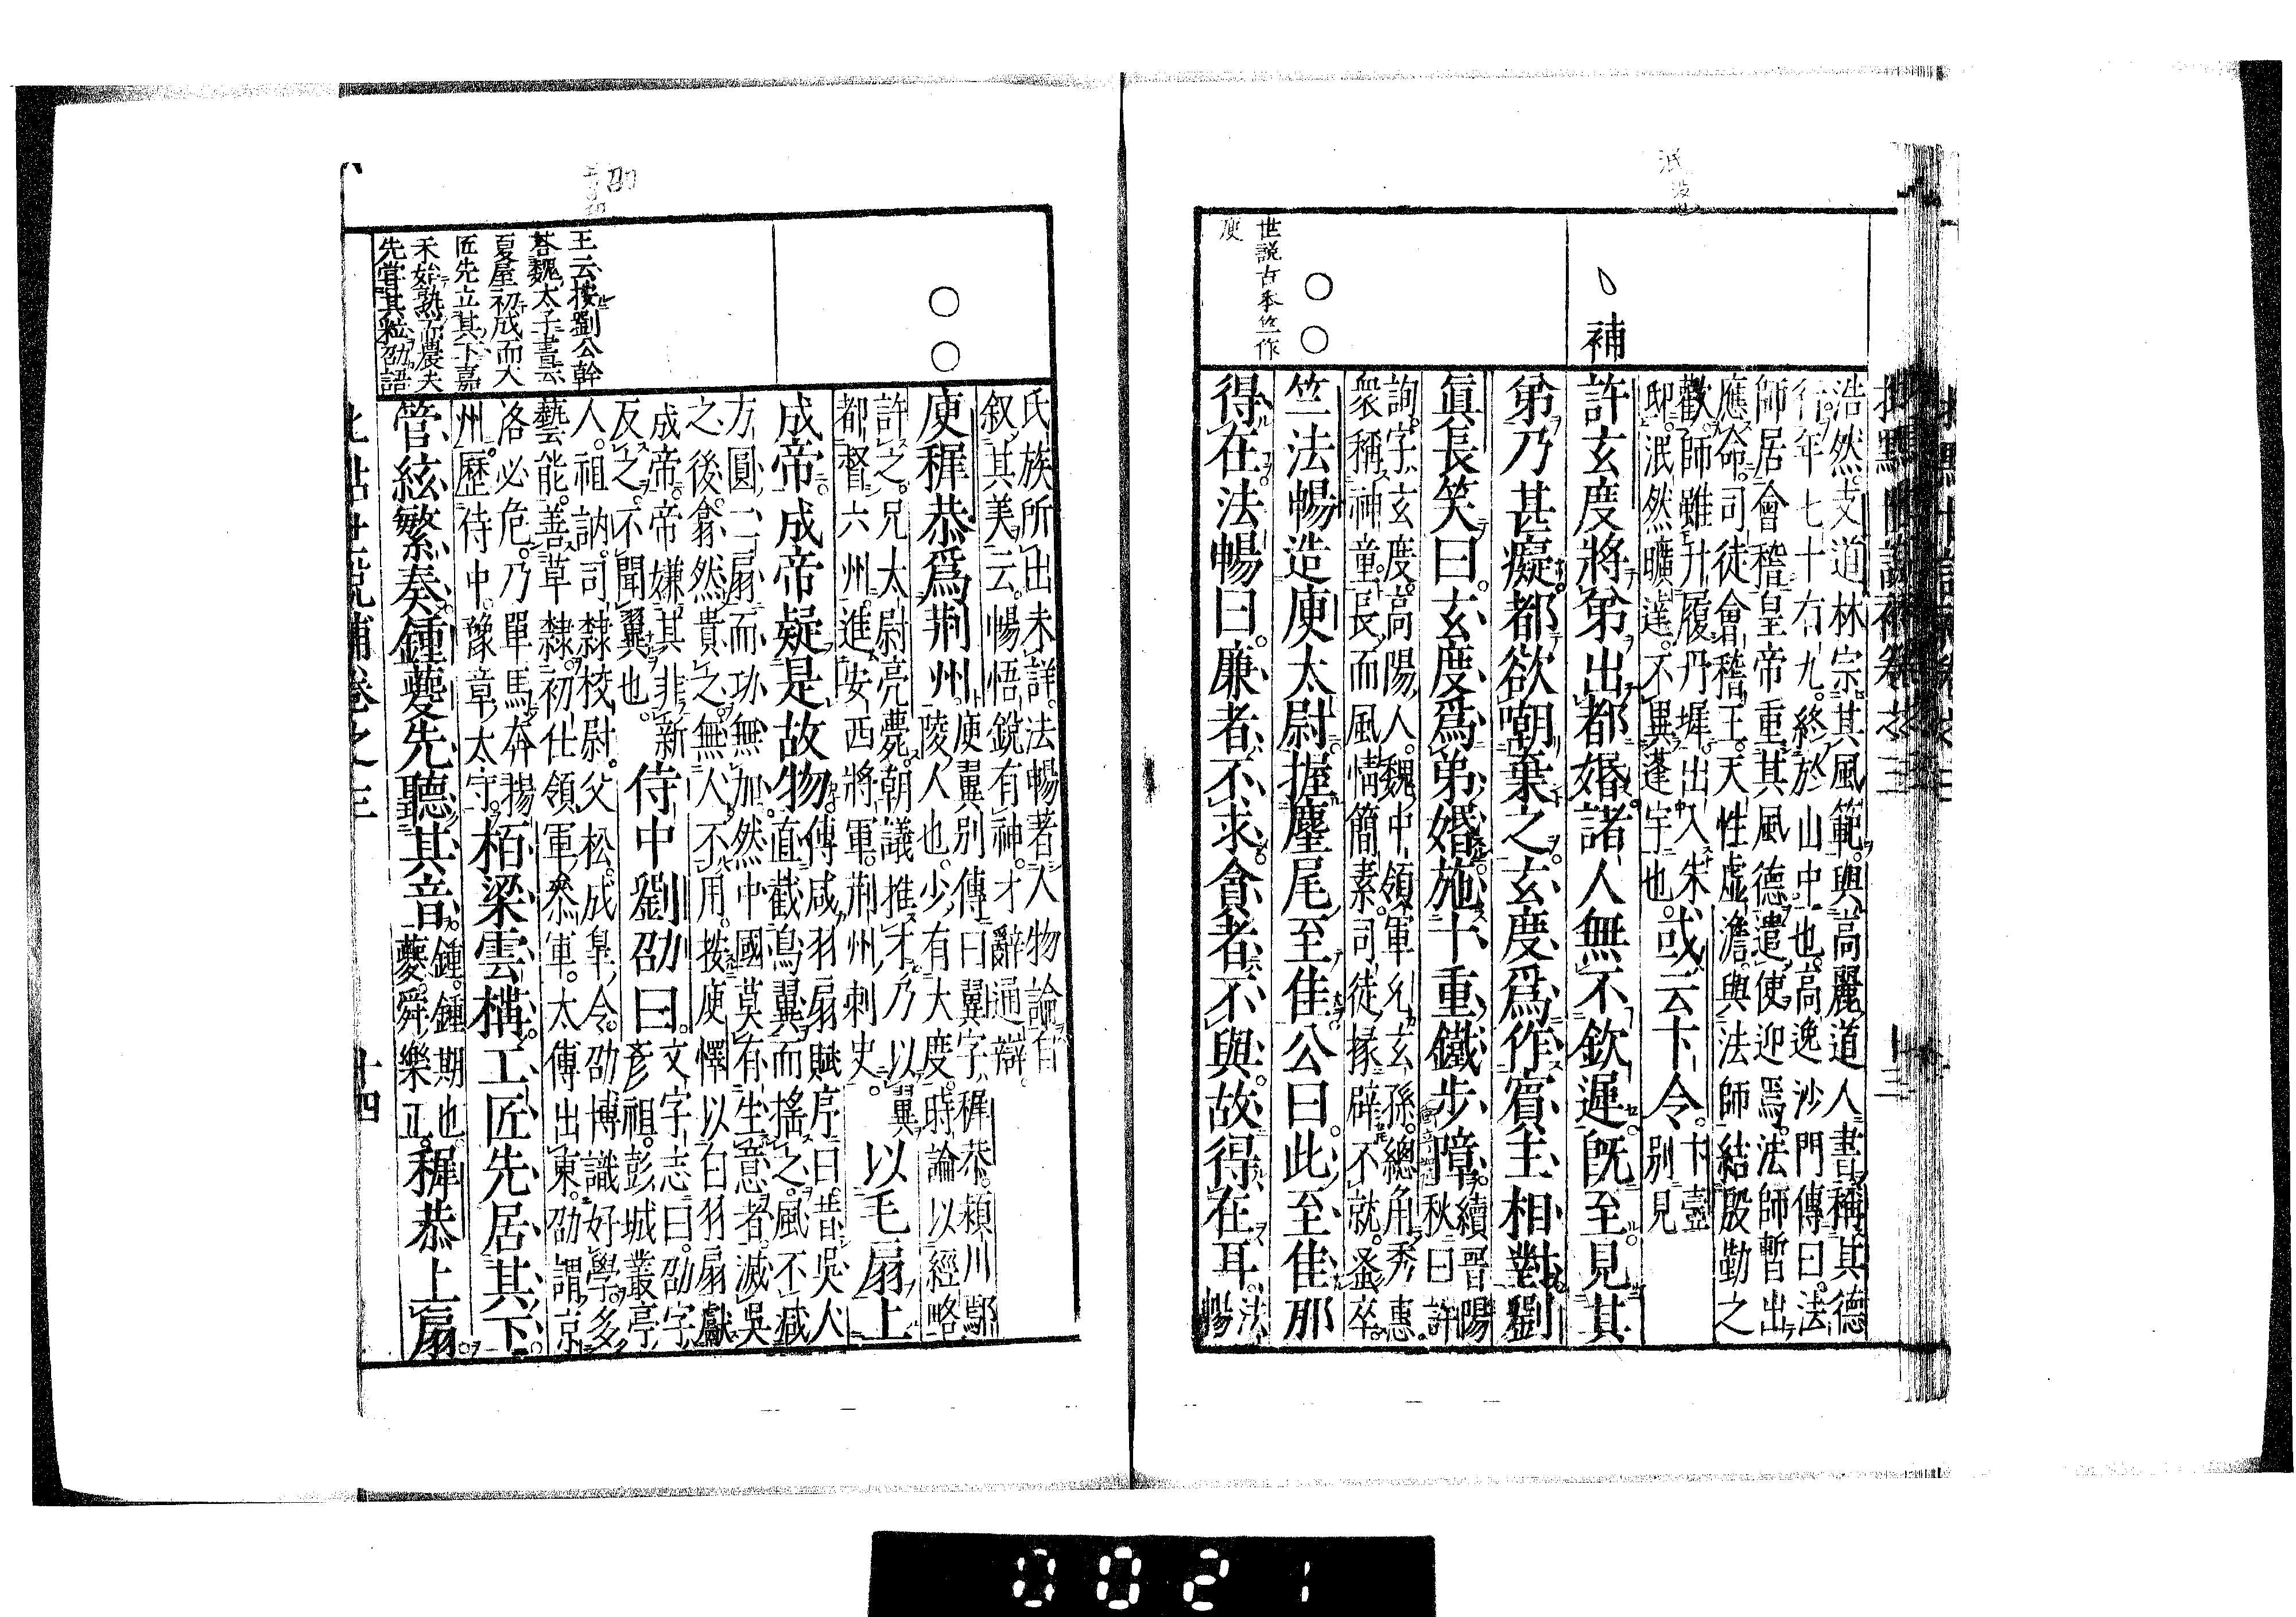 世説古本竺作
庾
補
浩然。支道林宗其風範。與高麗道人書。稱其德
行。年七十有九。終於山中也。高逸沙門傳曰。法
師居會稽。皇帝重其風德。遣使迎焉。法師暫出
應命。司徒會稽王。天性虛澹。與法師結殷勤之
歡。師雖升履丹墀。出入朱
邸。泯然曠達。不異蓬宇也。
或云卞令。
卞壼
別見
許玄度將弟出都婚。諸人無不欽遲。旣至。見其
弟乃甚癡。都欲嘲棄之。玄度爲作賓主相對。劉
眞長笑曰。玄度爲弟婚。施十重鐵步障。
續晉陽
秋曰。許
詢。字玄度。高陽人。魏中領軍允玄孫。總角秀惠。
衆稱神童。長而風情簡素。司徒掾辟不就。蚤卒。
竺法暢造庾太尉。握麈尾至佳。公曰。此至佳。那
得在。法暢曰。廉者不求。貪者不與。故得在耳。
法
暢
氏族所出未詳。法暢著人物論自
叙其美云。暢悟銳有神。才辭通辯。
庾稺恭爲荊州。
庾翼別傳曰。翼字稺恭。潁川鄢
陵人也。少有大度。時論以經略
許之。兄太尉亮薨。朝議推才。乃以翼
都督六州。進安西將軍。荊州刺史。
以毛扇上
成帝。成帝疑是故物。
傅咸羽扇賦序曰。昔吳人
直截鳥翼而搖之。風不減
方圓二扇而功無加。然中國莫有生意者。滅吳
之後。翕然貴之。無人不用。按庾懌以白羽扇獻
成帝。帝嫌其非新
反之。不聞翼也。
侍中劉劭曰。
文字志曰。劭字
彥祖。彭城叢亭
人。祖訥。司隸校尉。父松。成皐令。劭博識好學。多
藝能。善草隸。初仕領軍參軍。太傅出東。劭謂京
洛必危。乃單馬奔揚
州。歷侍中。豫章太守。
栢梁雲構。工匠先居其下。
管絃繁奏。鍾夔先聽其音。
鍾。鍾期也。
夔。舜樂正。
稺恭上扇。
王云按劉公幹
荅魏太子書云
夏屋初成而大
匠先立其下嘉
禾始熟而農夫
先嘗其粒劭語
批點世說補卷之三
十四
0021